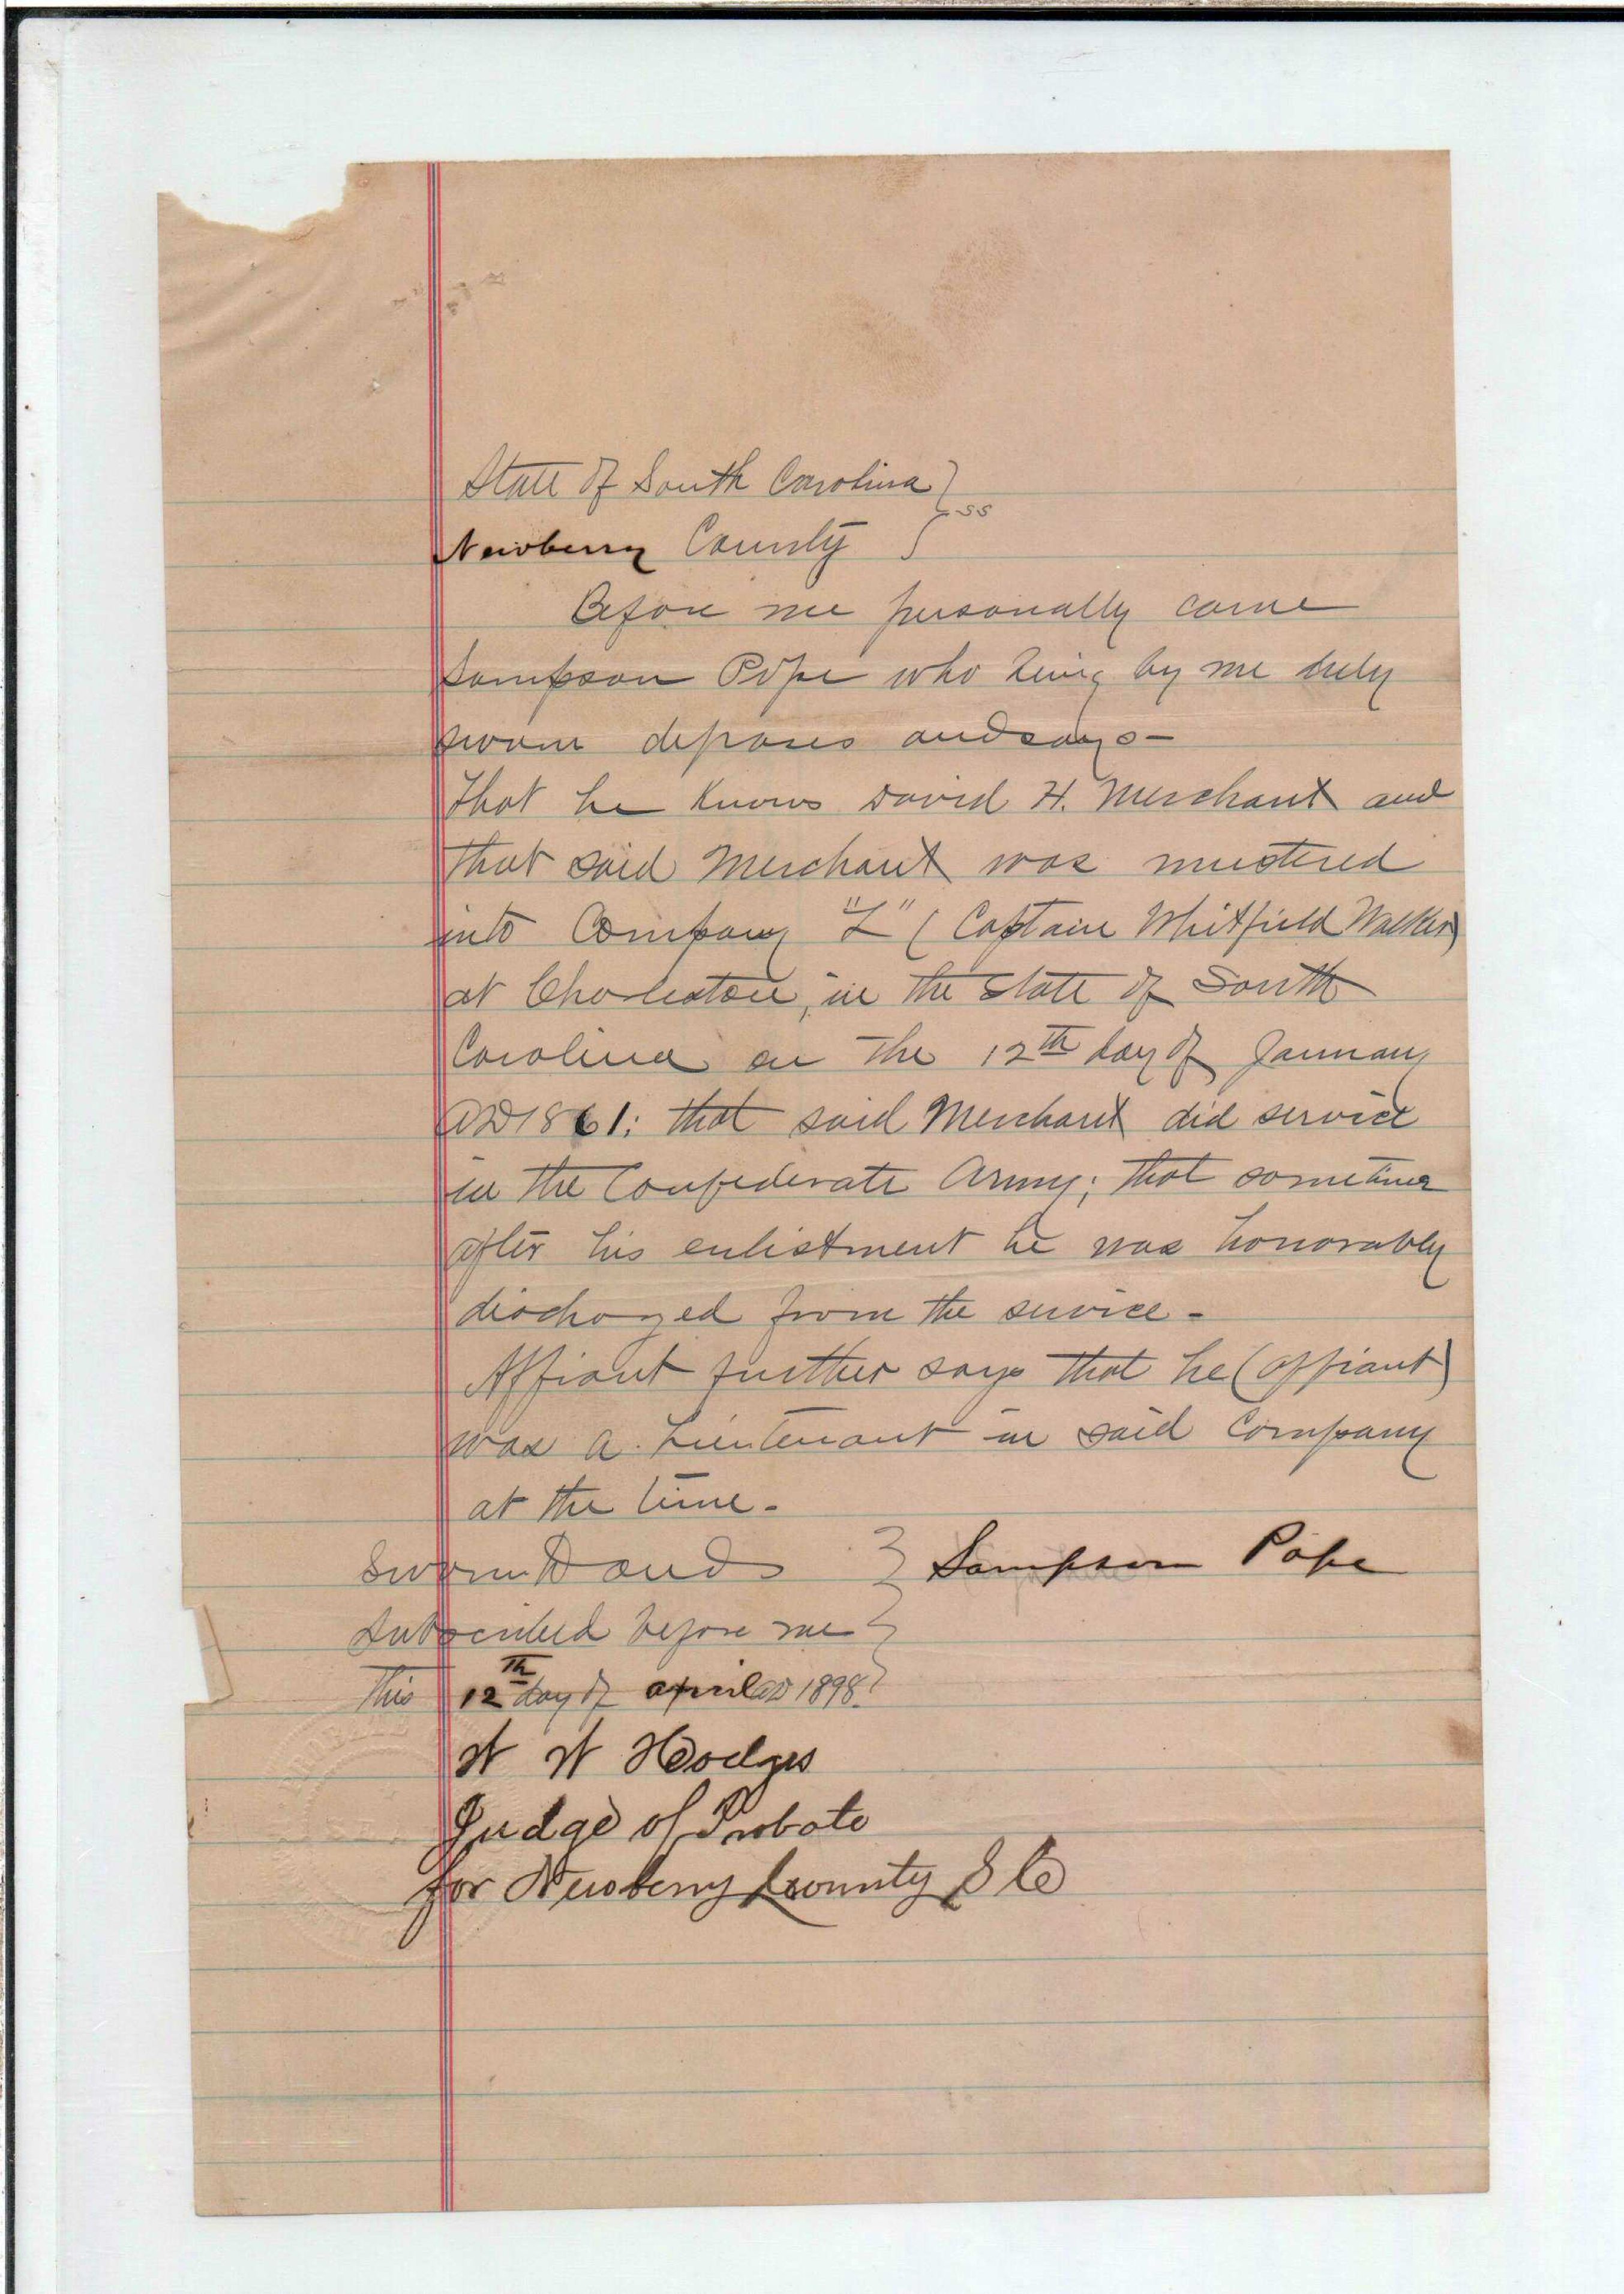 State of South Carolina }
ss
Newberry County }
Before me personally came
Sampson Pope who being by me duly
sworn deposes and says-
That he knows David H. Merchant and
that said Merchant was mustered
into Company "L" (Captain Whitfield Walker)
at Charleston, in the state of South
Carolina on the 12th day of January
AD 1861; that said Merchant did service
in the Confederate Army; that sometime
after his enlistment he was honorably
discharged from the service-
Affiant further says that he (affiant)
was a Lieutenant in said Company
at the time-
Sworn to and } Sampson Pope
Subscribed before me }
This 12th day of april AD 1898 }
W W Hodges
Judge of Probate
for Newberry County S C
PROBATE